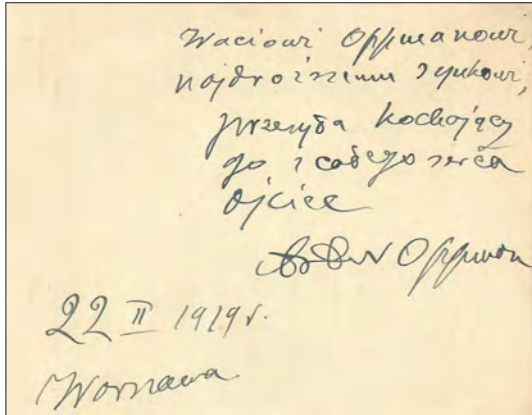 Waciowi Oppmanowi,
najdroższemu synkowi,
przesyła kochający
go z całego serca
ojciec
Artur Oppman
22 II 1919 r.
Warszawa